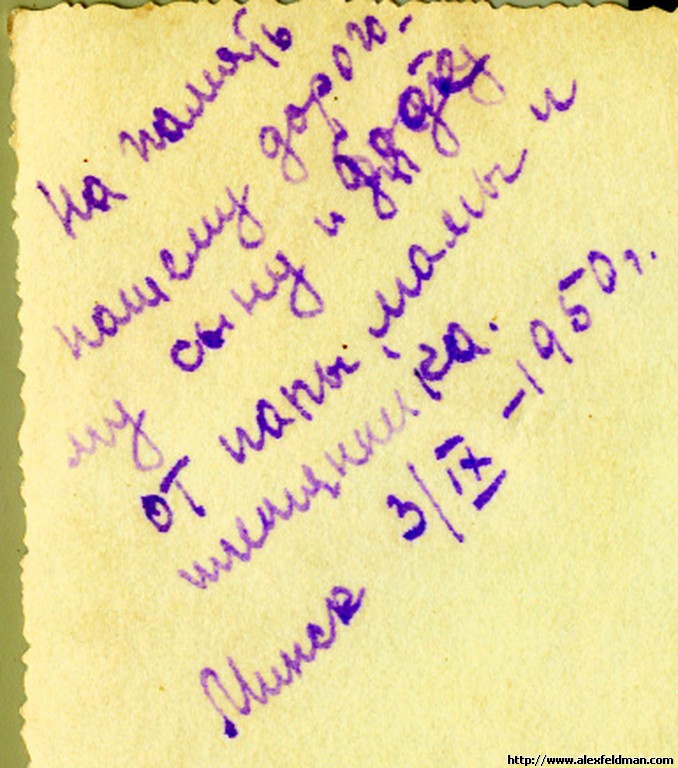 На память
нашему дорого-
му сыну и дяде
от папы, мамы и
племянника.
3/IX -1950г.
Минск
http://www.alexfeldman.com